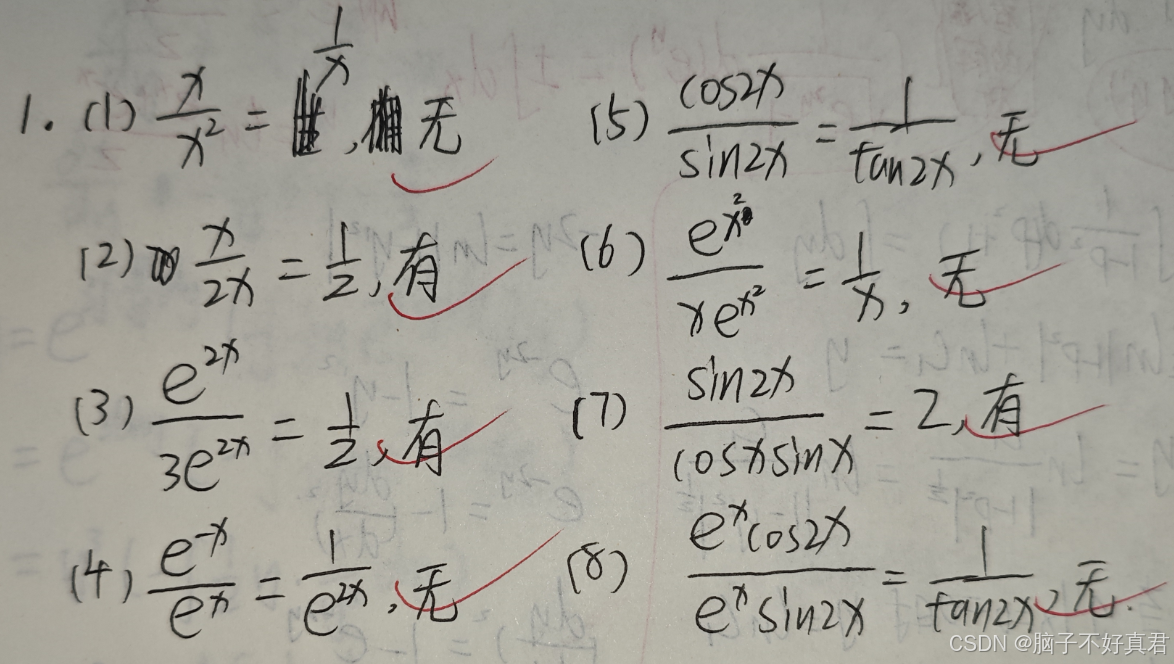 1. (1) x/x² = 1/x, 无
(2) x/2x = 1/2, 有
(3) e^{2x}/3e^{2x} = 1/2, 有
(4) e^{-x}/e^x = 1/e^{2x}, 无
(5) cos2x/sin2x = 1/tan2x, 无
(6) e^{x²}/xe^{x²} = 1/x, 无
(7) sin2x/cosxsinx = 2, 有
(8) e^xcos2x/e^xsin2x = 1/tan2x, 无.
CSDN @脑子不好真君